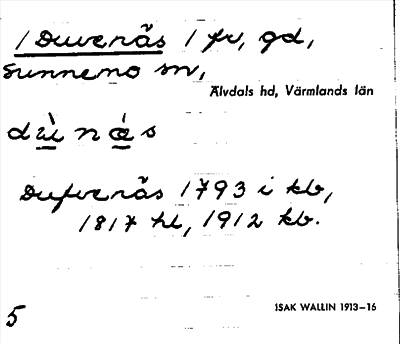 1 Duvenäs 1 fr, gd,
Sunnemo sn,
Älvdals hd, Värmlands län
dù nà̱s
Dufvenäs 1793 i kb,
1817 hl, 1912 kb.
5
ISAK WALLIN 1913–16